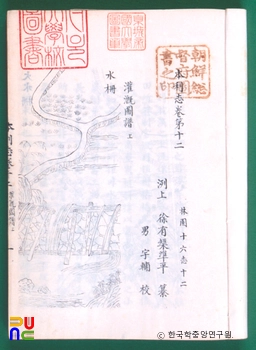 朝鮮總督府圖書之印
本利志卷第十二 林園十六志十二
洌上 徐有榘準平 纂
男 宇輔 校
灌漑圖譜 上
水柵
大學校圖書
© 한국학중앙연구원